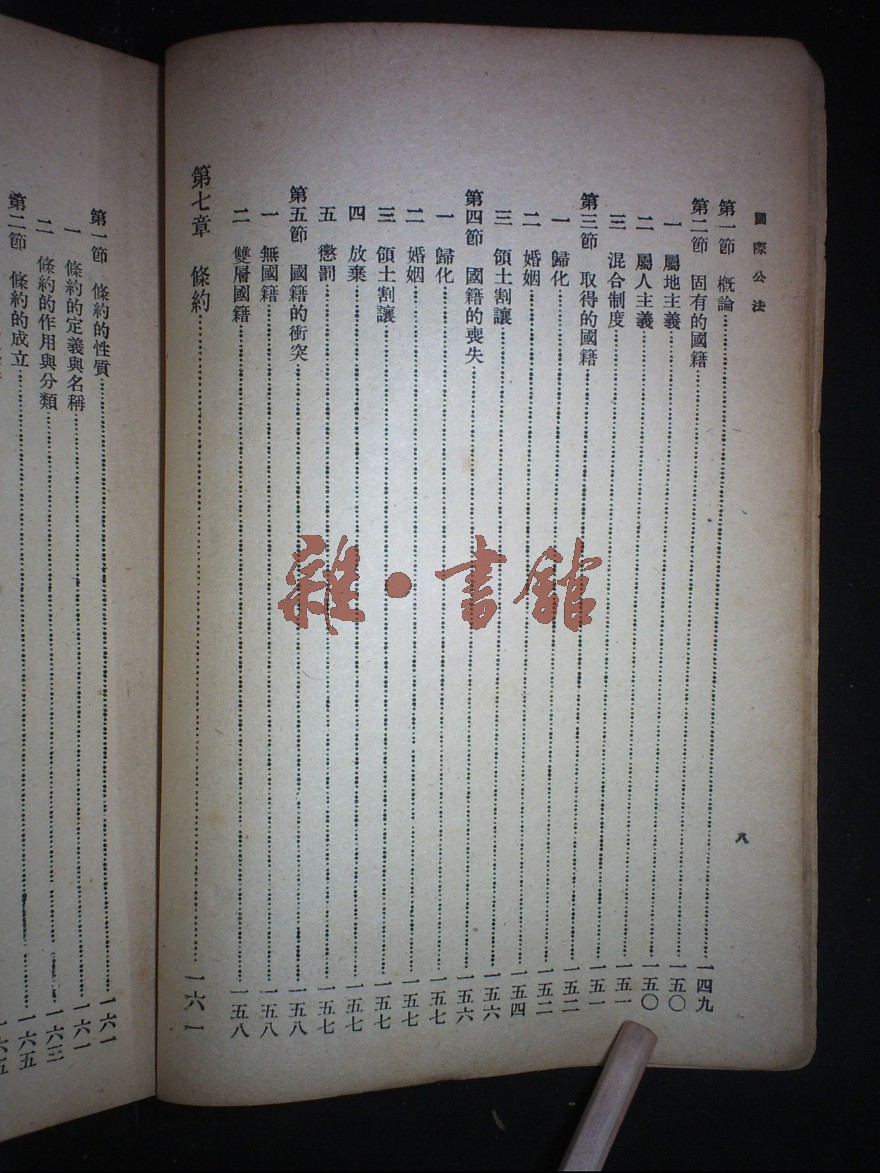 國際公法
八
第一節 概論……一四九
第二節 固有的國籍……一五〇
一 屬地主義……一五〇
二 屬人主義……一五一
三 混合制度……一五一
第三節 取得的國籍……一五二
一 歸化……一五二
二 婚姻……一五四
三 領土割讓……一五六
第四節 國籍的喪失……一五六
一 歸化……一五七
二 婚姻……一五七
三 領土割讓……一五七
四 放棄……一五七
五 懲罰……一五七
第五節 國籍的衝突……一五八
一 無國籍……一五八
二 雙層國籍……一五八
第七章 條約……一六一
第一節 條約的性質……一六一
一 條約的定義與名稱……一六一
二 條約的作用與分類……一六三
第二節 條約的成立……一六五
雜·書館